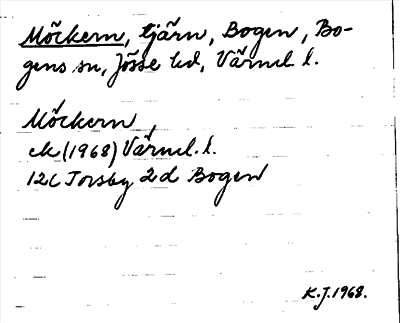 Möckern, tjärn, Bogen, Bo-
gens sn, Jösse hd, Värml. l.
Möckern,
ek (1968) Värml. l.
12C Torsby 2d Bogen
K.J. 1968.